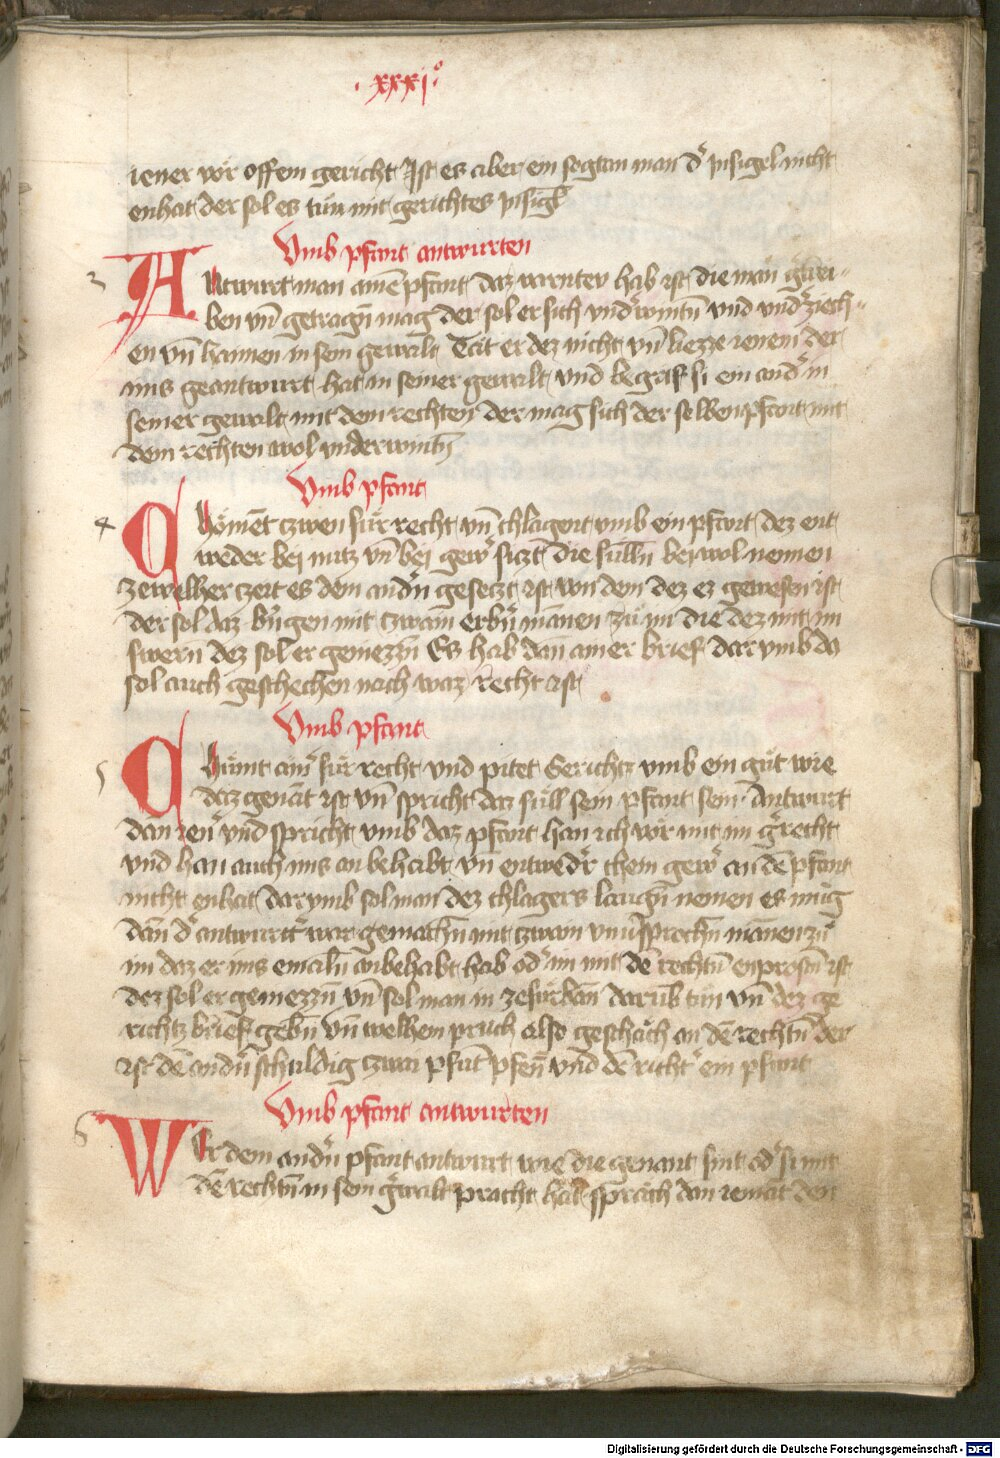 · xxxj° ·
iener vor offem gericht Ist es aber ein sogtan man d' Insigel nicht
enhat der sol es tün mit gerichtes Insigl
Vmb pfant antwurten
3
Antwurt man aim̄ pfant daz
hab ist die man getrei-
ben vn̄ getragn̄ mag der sol er sich vnd'wintn̄ vnd vnd'ziech-
en vn̄ haimen in sein gewalt Tät er dez nicht vn̄ liezze ienem der
ims geantwurt hat in seiner gewalt vnd begraif si ein and' in
seiner gewalt mit dem rechten der mag sich der selben pfant mit
dem rechten wol vnderwintn̄
Vmb pfant
4
Chöment zwen für recht vn̄ chlagent vmb ein pfant dez ent
weder bei nutz vn̄ bei gew' siczt die sülln̄ bei wol nennen
ze welher czeit es dem andn̄ geseczt ist von dem dez ez gewesen ist
der sol daz bringen mit zwain erbn̄ mannen zu im die dez mit im
swern̄ dez sol er geniezzn̄ Es hab dan̄ ainer brief dar vmb da
sol auch geschechen nach waz recht ist
Vmb pfant
5
Chümt ain' für recht vnd pitet Gerichtz vmb ein güt wie
daz genāt ist vn̄ spricht daz süll sein pfant sein Antwurt
dan ien' vnd spricht vmb daz pfant han ich vor mit im g'recht
vnd han auch ims an behabt vn̄ entwed'r chein gew' an dē pfant
nicht enhat dar vmb sol man dez chlagers laugn̄ nemen es müg
dan̄ d' antwurt' war gemachn̄ mit zwain vnu'sprochn̄ mannen zu
im daz er ims emaln̄ anbehabt hab od' im mit dē rechtn̄ enprostn̄ ist
dez sol er geniezzn̄ vn̄ sol man in ze fürban̄ darūb tün vn̄ dez ge
richtz brief gebn̄ vn̄ welhem pruch also geschäch an dē rechtn̄ der
ist dē andn̄ schuldig zwai pfūt pfen̄ vnd dē richt' ein pfunt
Vmb pfant antwurten
6
Wer dem andn̄ pfant antwurt wie die genant sint od' si mit
dē rechtn̄ in sein g'walt pracht hat spräch dan iemāt den
Digitalisierung gefördert durch die Deutsche Forschungsgemeinschaft - DFG